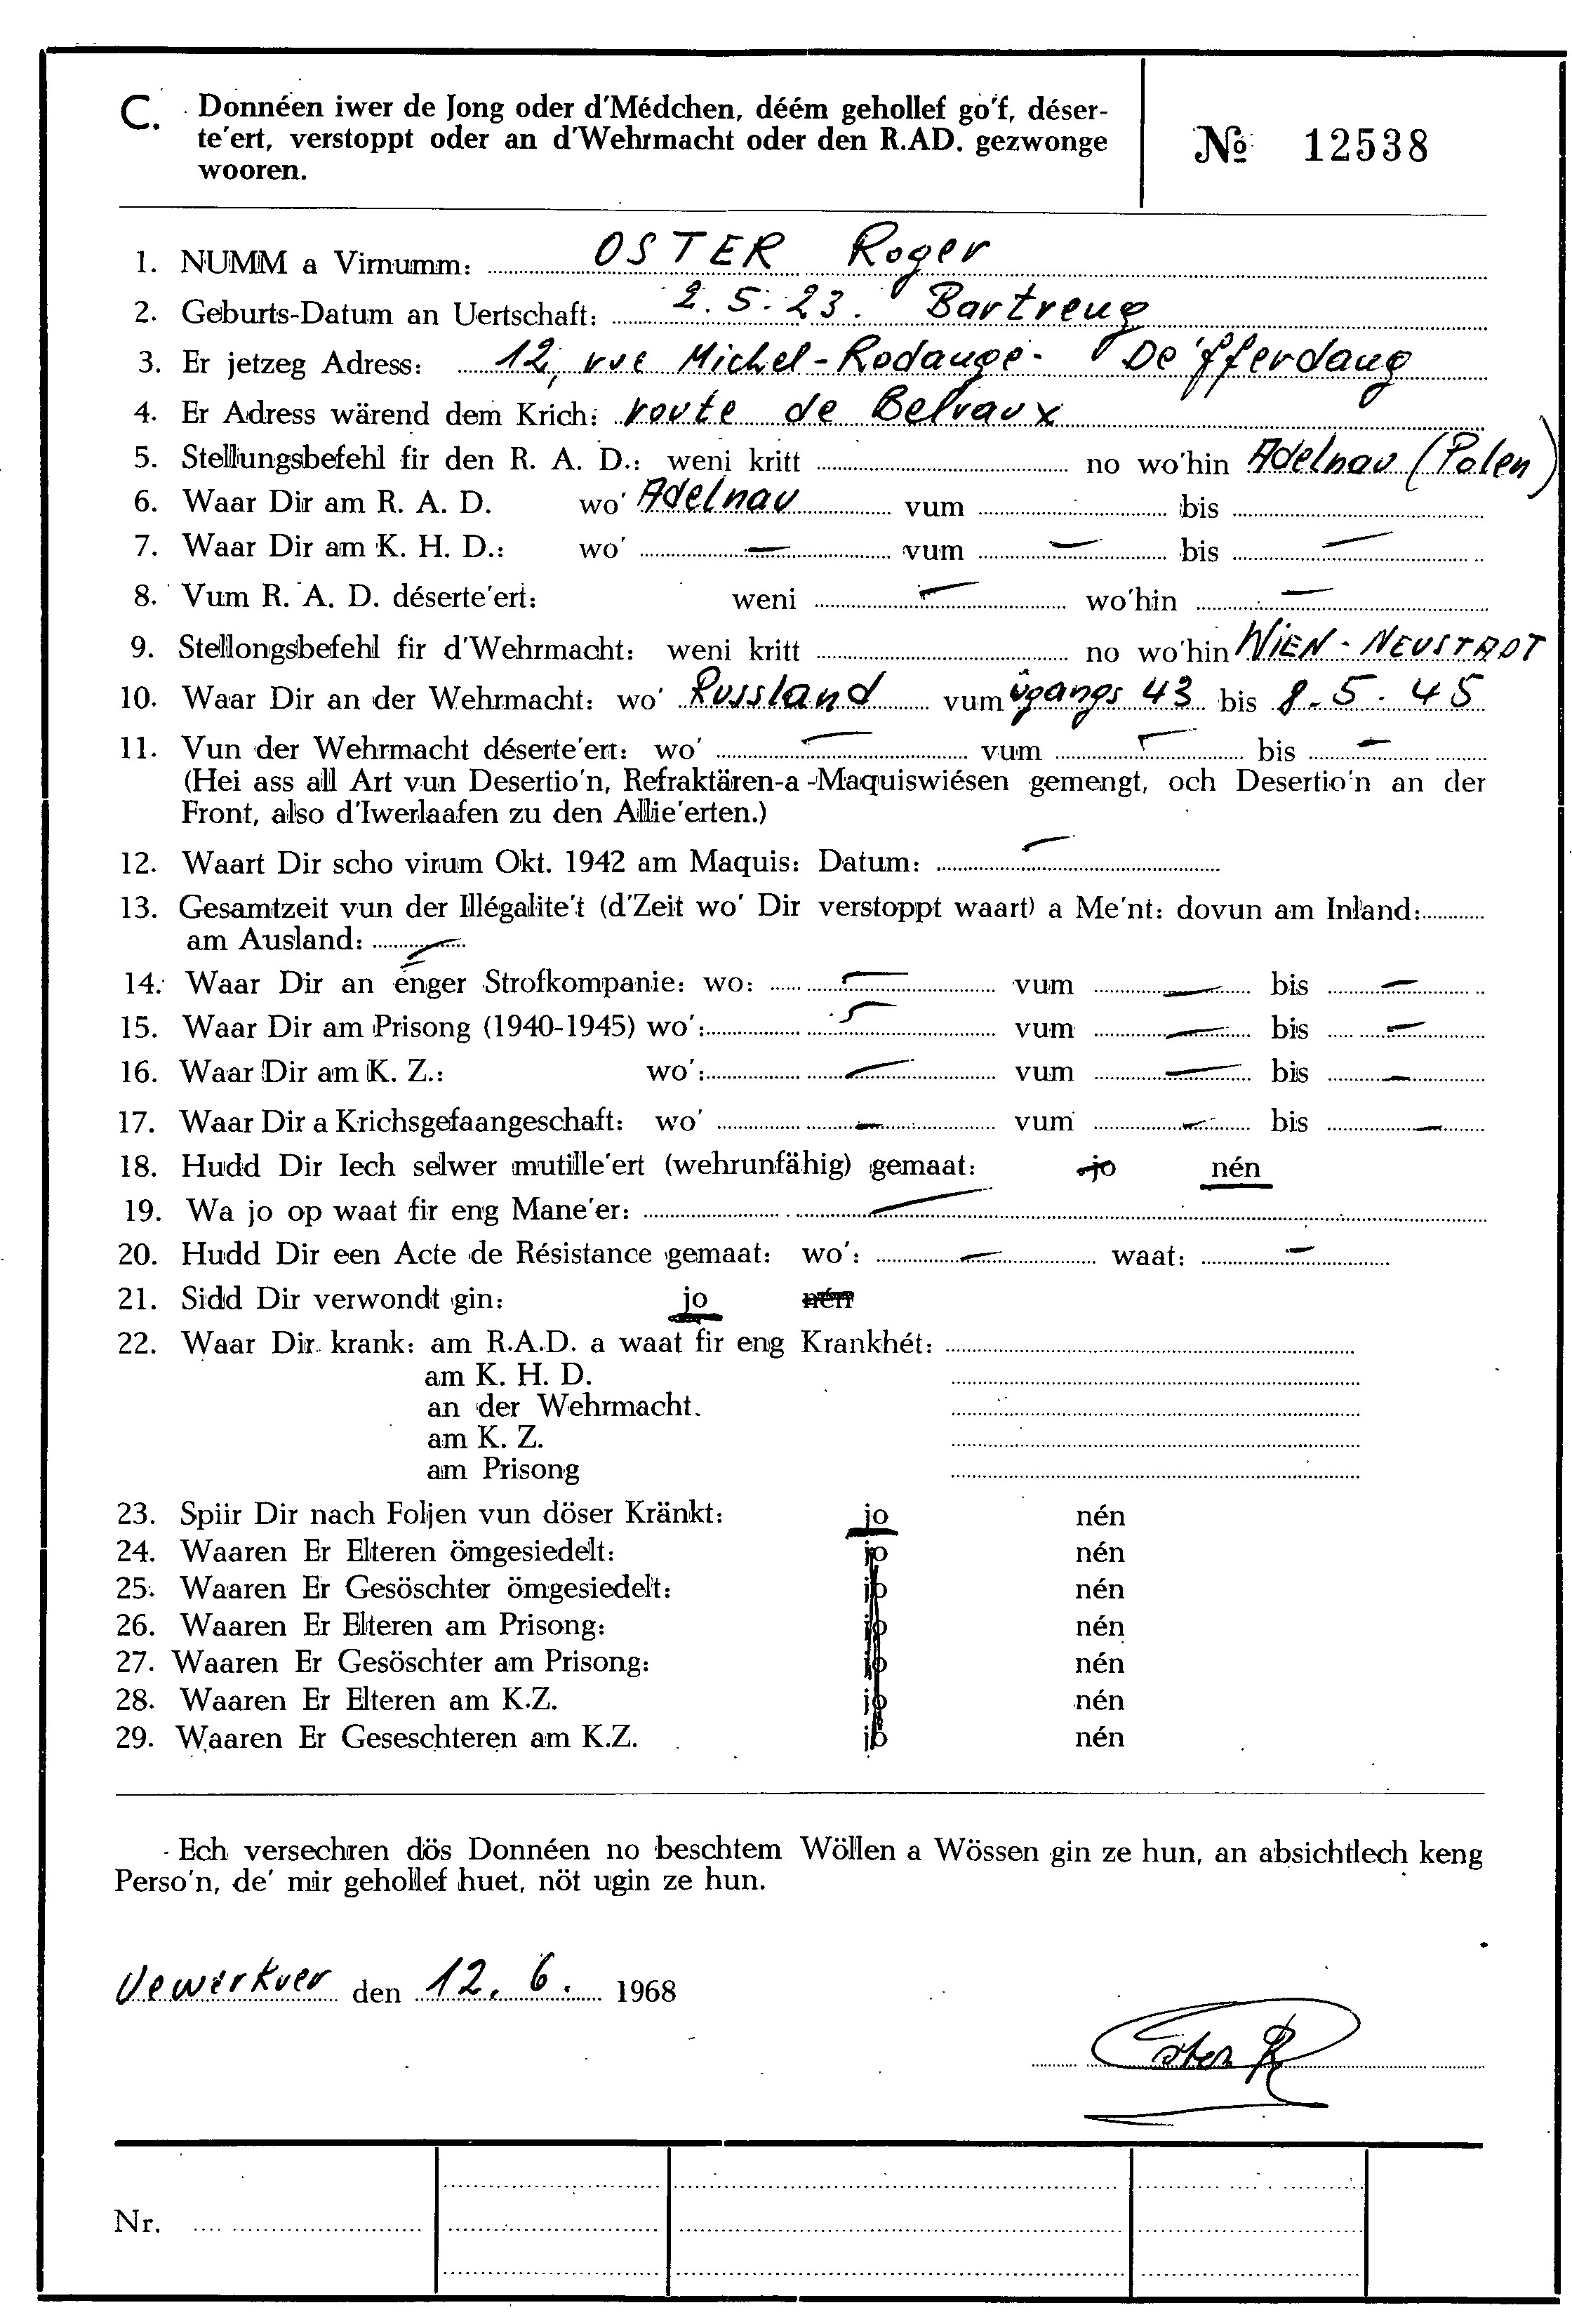 C. Donnéen iwer de Jong oder d'Médchen, déém gehollef go'f, déser-
te'ert, verstoppt oder an d'Wehrmacht oder den R.AD. gezwonge
wooren.
№ 12538
1. NUMM a Virnumm: OSTER Roger
2. Geburts-Datum an Uertschaft: 2.5.23. Bartreng
3. Er jetzeg Adress: 12, rue Michel-Rodange- De'fferdang
4. Er Adress wärend dem Krich: route de Belvaux
5. Stellungsbefehl fir den R. A. D.: weni kritt no wo'hin Adelnau (Polen)
6. Waar Dir am R. A. D. wo' Adelnau vum bis
7. Waar Dir am K. H. D.: wo' — vum — bis —
8. Vum R. A. D. déserte'ert: weni — wo'hin —
9. Stellongsbefehl fir d'Wehrmacht: weni kritt no wo'hin WIEN - NEUSTADT
10. Waar Dir an der Wehrmacht: wo' Russland vum ûgangs 43 bis 8.5.45
11. Vun der Wehrmacht déserte'ert: wo' — vum — bis —
(Hei ass all Art vun Desertio'n, Refraktären-a -Maquiswiésen gemengt, och Desertio'n an der
Front, also d'Iwerlaafen zu den Allie'erten.)
12. Waart Dir scho virum Okt. 1942 am Maquis: Datum: —
13. Gesamtzeit vun der Illégalite't (d'Zeit wo' Dir verstoppt waart) a Me'nt: dovun am Inland:
am Ausland: —
14. Waar Dir an enger Strofkompanie: wo: — vum — bis —
15. Waar Dir am Prisong (1940-1945) wo': — vum — bis —
16. Waar Dir am K. Z.: wo': — vum — bis —
17. Waar Dir a Krichsgefaangeschaft: wo' — vum — bis —
18. Hudd Dir Iech selwer mutille'ert (wehrunfähig) gemaat: jo nén
19. Wa jo op waat fir eng Mane'er: —
20. Hudd Dir een Acte de Résistance gemaat: wo': — waat: —
21. Sidd Dir verwondt gin: jo nén
22. Waar Dir krank: am R.A.D. a waat fir eng Krankhét:
am K. H. D.
an der Wehrmacht.
am K. Z.
am Prisong
23. Spiir Dir nach Foljen vun döser Kränkt: jo nén
24. Waaren Er Elteren ömgesiedelt: jo nén
25. Waaren Er Gesöschter ömgesiedelt: jo nén
26. Waaren Er Elteren am Prisong: jo nén
27. Waaren Er Gesöschter am Prisong: jo nén
28. Waaren Er Elteren am K.Z. jo nén
29. Waaren Er Geseschteren am K.Z. jo nén
- Ech versechren dös Donnéen no beschtem Wöllen a Wössen gin ze hun, an absichtlech keng
Perso'n, de' mir gehollef huet, nöt ugin ze hun.
Uewerkuer den 12. 6. 1968
Oster R
Nr.